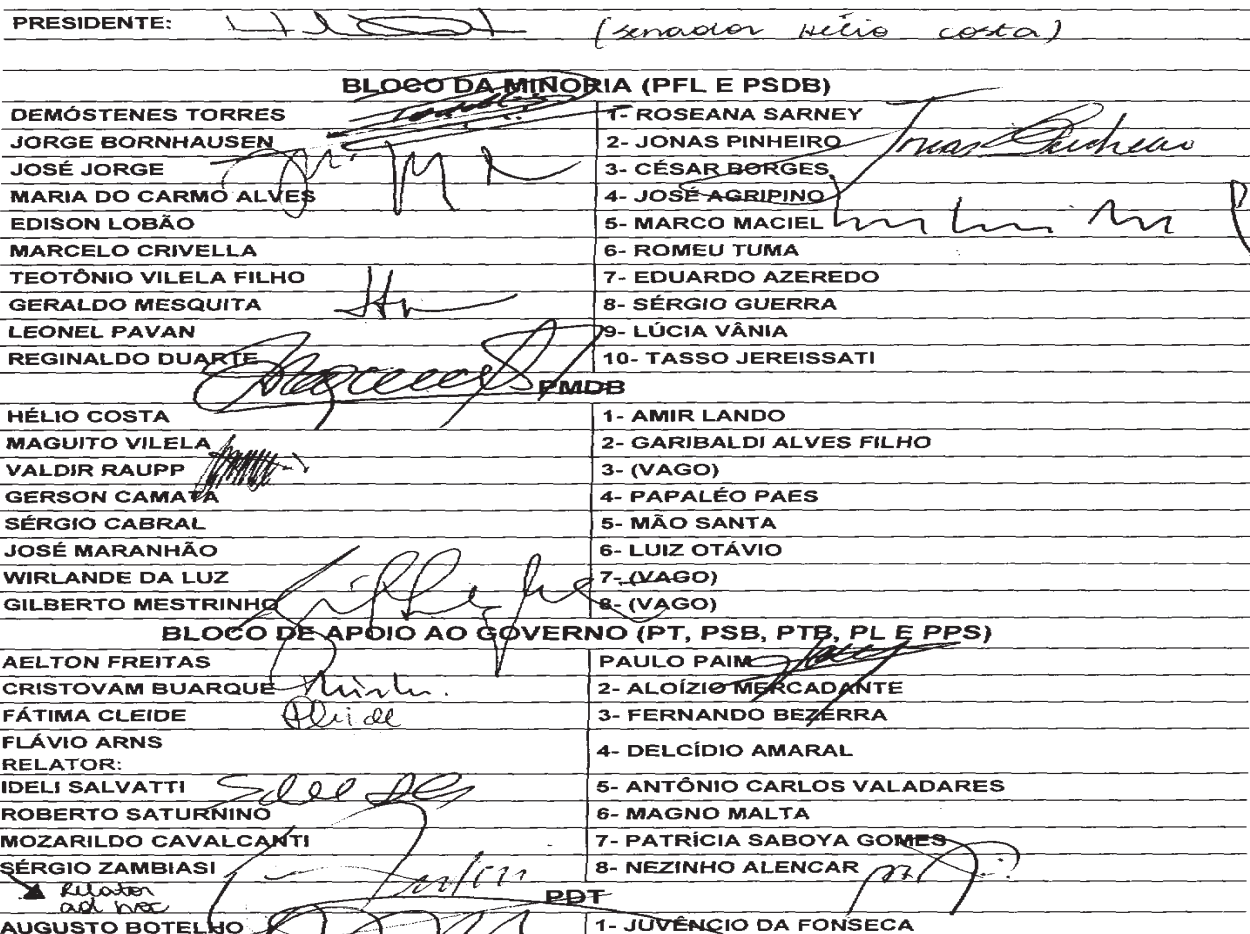 PRESIDENTE: (senador Hélio costa)
BLOCO DA MINORIA (PFL E PSDB)
DEMÓSTENES TORRES 1- ROSEANA SARNEY
JORGE BORNHAUSEN 2- JONAS PINHEIRO
JOSÉ JORGE 3- CÉSAR BORGES
MARIA DO CARMO ALVES 4- JOSÉ AGRIPINO
EDISON LOBÃO 5- MARCO MACIEL
MARCELO CRIVELLA 6- ROMEU TUMA
TEOTÔNIO VILELA FILHO 7- EDUARDO AZEREDO
GERALDO MESQUITA 8- SÉRGIO GUERRA
LEONEL PAVAN 9- LÚCIA VÂNIA
REGINALDO DUARTE 10- TASSO JEREISSATI
PMDB
HÉLIO COSTA 1- AMIR LANDO
MAGUITO VILELA 2- GARIBALDI ALVES FILHO
VALDIR RAUPP 3- (VAGO)
GERSON CAMATA 4- PAPALÉO PAES
SÉRGIO CABRAL 5- MÃO SANTA
JOSÉ MARANHÃO 6- LUIZ OTÁVIO
WIRLANDE DA LUZ 7- (VAGO)
GILBERTO MESTRINHO 8- (VAGO)
BLOCO DE APOIO AO GOVERNO (PT, PSB, PTB, PL E PPS)
AELTON FREITAS PAULO PAIM
CRISTOVAM BUARQUE 2- ALOÍZIO MERCADANTE
FÁTIMA CLEIDE 3- FERNANDO BEZERRA
FLÁVIO ARNS 4- DELCÍDIO AMARAL
RELATOR:
IDELI SALVATTI 5- ANTÔNIO CARLOS VALADARES
ROBERTO SATURNINO 6- MAGNO MALTA
MOZARILDO CAVALCANTI 7- PATRÍCIA SABOYA GOMES
SÉRGIO ZAMBIASI 8- NEZINHO ALENCAR
Relator
ad hoc
PDT
AUGUSTO BOTELHO 1- JUVÊNCIO DA FONSECA